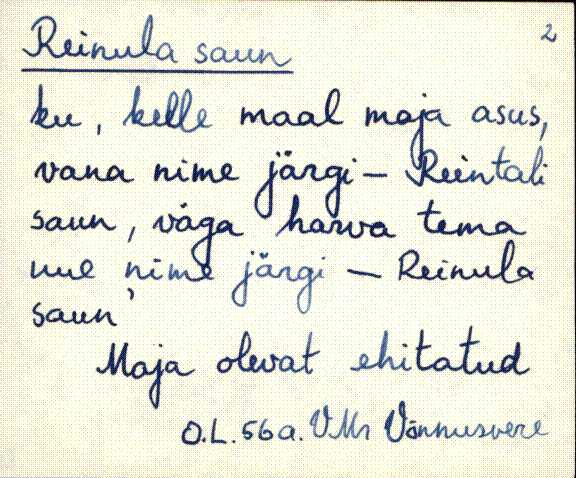 2
Reinula saun
ku, kelle maal maja asus,
vana nime järgi – Reintali
saun, väga harva tema
uue nime järgi – Reinula
saun'
Maja olevat ehitatud
O.L. 56a. VMr Võnnusvere